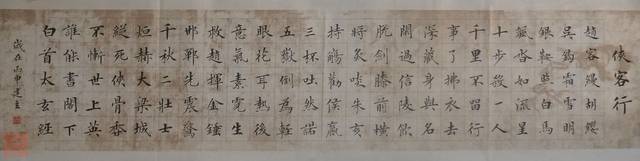 俠客行
趙客縵胡纓
吳鉤霜雪明
銀鞍照白馬
颯沓如流星
十步殺一人
千里不留行
事了拂衣去
深藏身與名
閑過信陵飲
脫劍膝前橫
將炙啖朱亥
持觴勸侯嬴
三杯吐然諾
五嶽倒為輕
眼花耳熱後
意氣素霓生
救趙揮金錘
邯鄲先震驚
千秋二壯士
烜赫大梁城
縱死俠骨香
不慚世上英
誰能書閣下
白首太玄經
歲在丙申